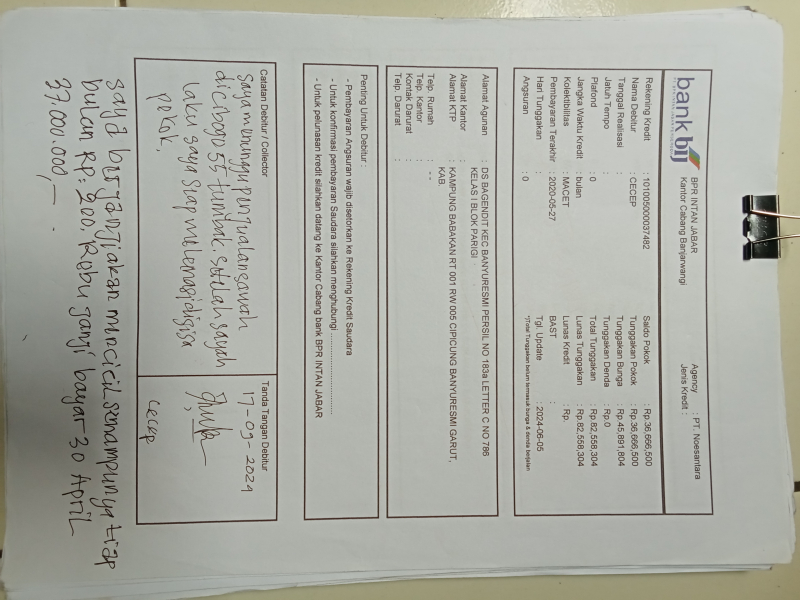 bank bij
BPR INTAN JABAR
Kantor Cabang Banjarwangi
Agency : PT. Noesantara
Jenis Kredit :
Rekening Kredit : 101005000037482
Nama Debitur : CECEP
Tanggal Realisasi :
Jatuh Tempo :
Plafond : 0
Jangka Waktu Kredit : bulan
Kolektibilitas : MACET
Pembayaran Terakhir : 2020-05-27
Hari Tunggakan :
Angsuran : 0
Saldo Pokok : Rp.36,666,500
Tunggakan Pokok : Rp.36,666,500
Tunggakan Bunga : Rp.45,891,804
Tunggakan Denda : Rp.0
Total Tunggakan : Rp.82,558,304
Lunas Tunggakan : Rp.82,558,304
Lunas Kredit : Rp.
BAST :
Tgl. Update : 2024-06-05
*)Total Tunggakan belum termasuk bunga & denda berjalan
Alamat Agunan : DS BAGENDIT KEC BANYURESMI PERSIL NO 183a LETTER C NO 786
KELAS I BLOK PARIGI
Alamat Kantor :
Alamat KTP : KAMPUNG BABAKAN RT 001 RW 005 CIPICUNG BANYURESMI GARUT,
KAB.
Telp. Rumah : --
Telp. Kantor :
Kontak Darurat :
Telp. Darurat :
Penting Untuk Debitur :
- Pembayaran Angsuran wajib disetorkan ke Rekening Kredit Saudara
- Untuk konfirmasi pembayaran Saudara silahkan menghubungi
- Untuk pelunasan kredit silahkan datang ke Kantor Cabang bank BPR INTAN JABAR
Catatan Debitur / Collector
saya menunggu penjualan sawah
di cibogo 55 tumbak setelah sawah
laku saya siap melunasi digisa
pokok.
Tanda Tangan Debitur
17-09-2024
cecep
saya berjanji akan mencicil semampunya tiap
bulan Rp: 200. Ribu janji bayar 30 April
37.000.000,-